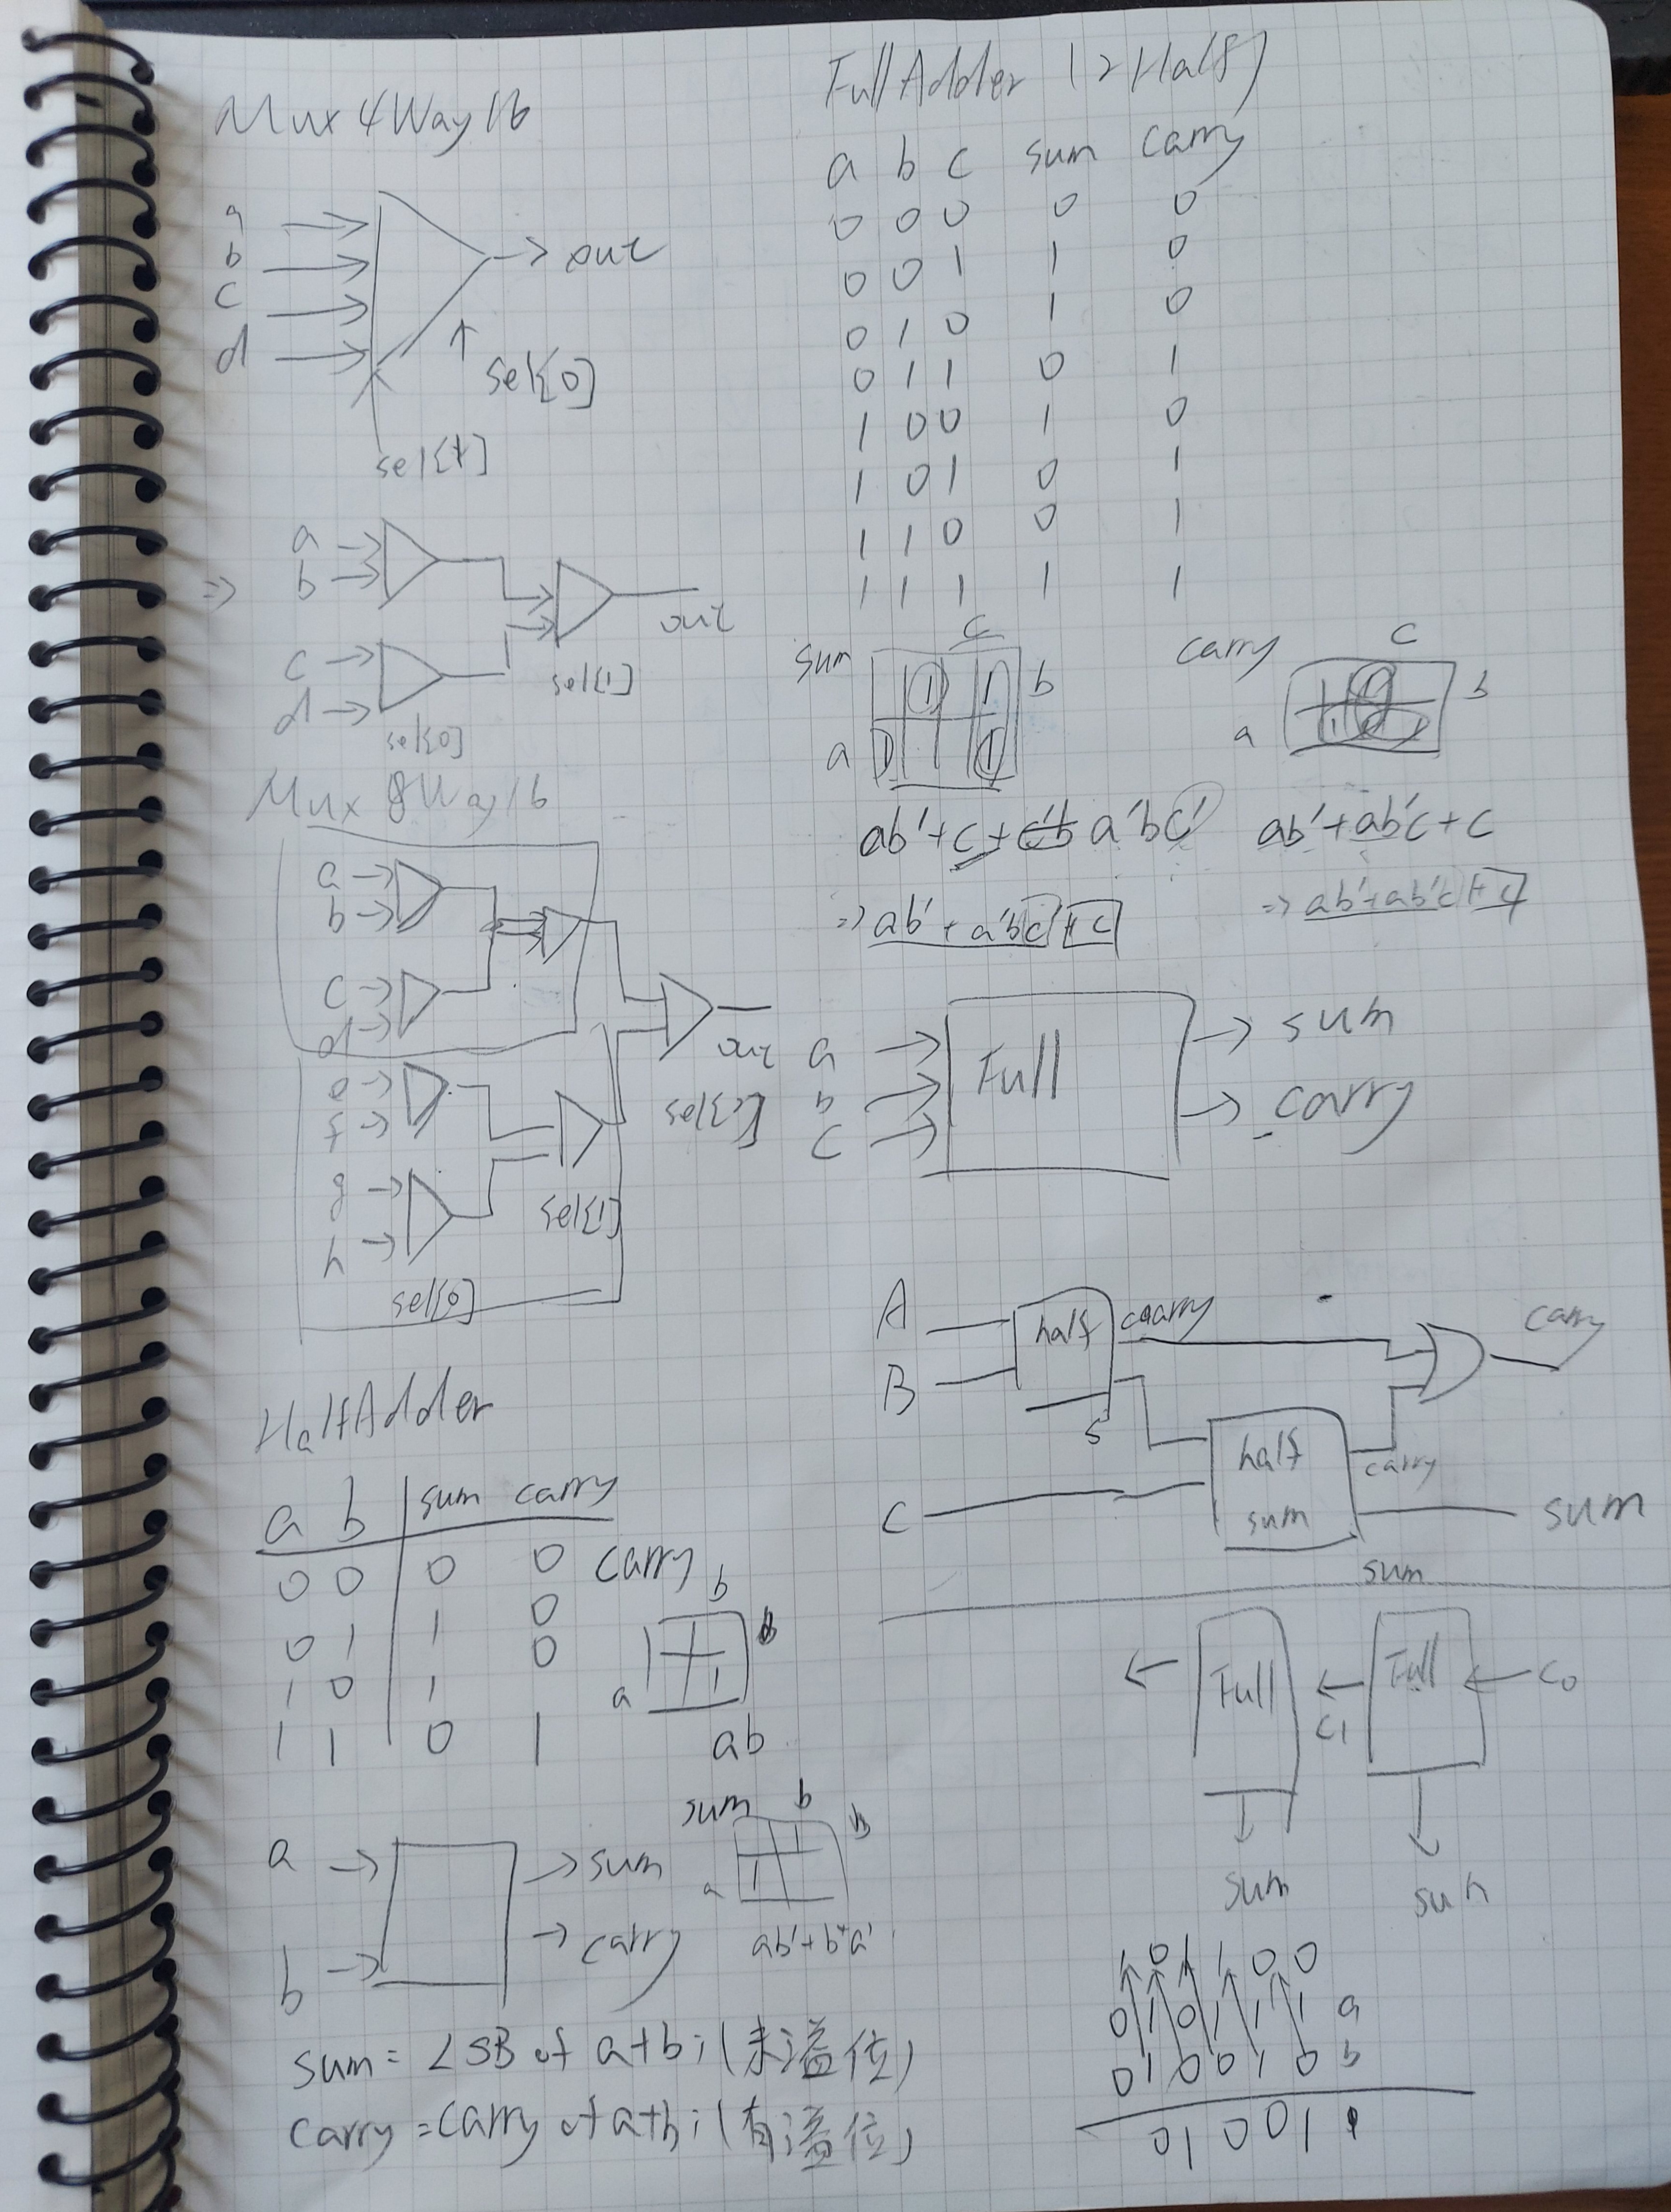 Mux4Way16
a
b
c
d
out
sel[0]
sel[1]
=>
a
b
c
d
out
sel[1]
sel[0]
Mux8Way16
a
b
c
d
e
f
g
h
out
sel[1]
sel[0]
HalfAdder
a b sum carry
0 0 0 0
0 1 1 0
1 0 1 0
1 1 0 1
carry
b
a
1
ab
a
b
sum
carry
sum
b
b
a
1
1
ab'+b'a'
sum = LSB of a+b;(未溢位)
carry = carry of a+b;(有溢位)
FullAdder (2Half)
a b c sum carry
0 0 0 0 0
0 0 1 1 0
0 1 0 1 0
0 1 1 0 1
1 0 0 1 0
1 0 1 0 1
1 1 0 0 1
1 1 1 1 1
sum
c
b
a
1
1
1
1
carry
c
b
a
ab'+c+ a'bc'
ab'+ab'c+c
=> ab'+a'bc+c
=> ab'+ab'c+c
a
b
c
Full
sum
carry
A
B
C
half
carry
s
half
sum
carry
carry
sum
sum
Full
Full
C0
C1
sum
sum
1 0 1 1 0 0
0 1 0 1 1 1 a
0 1 0 0 1 0 b
0 1 0 0 1